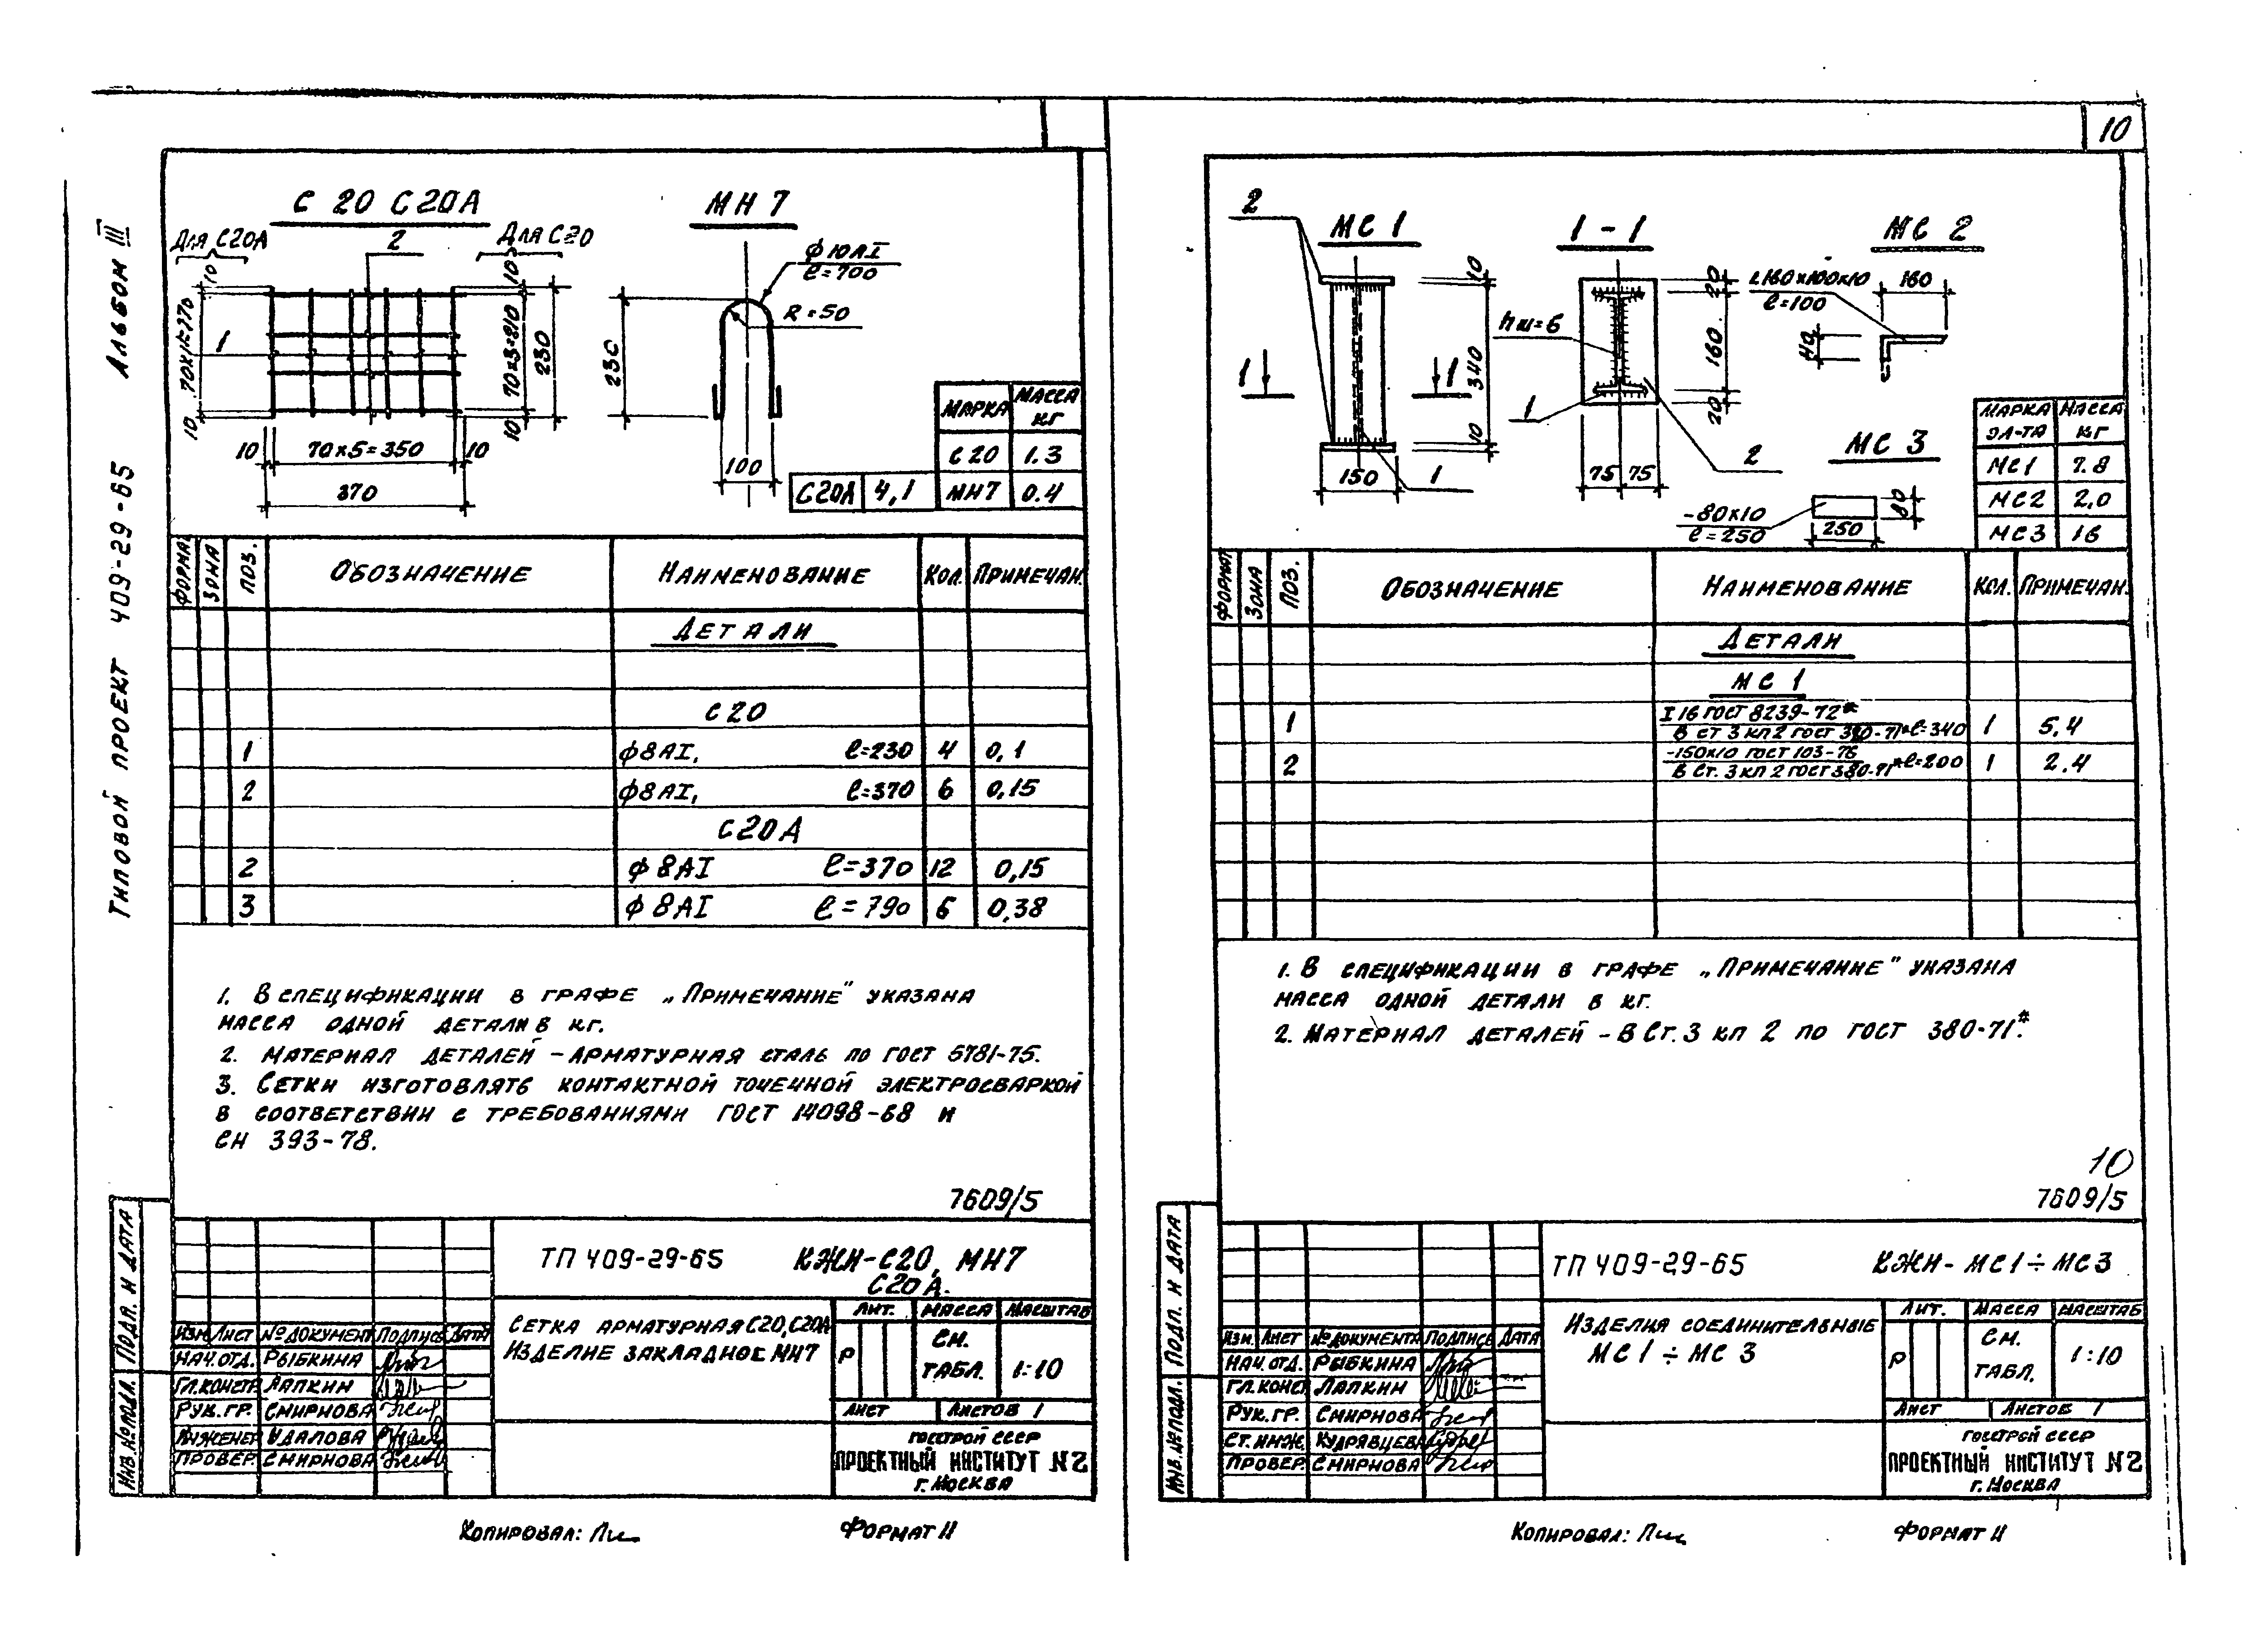 Альбом III
Типовой проект 409-29-65
С 20 С20А
Для С20А
2
Для С20
10
10
70х11=770
1
70х3=810
230
10
10
10
70х5=350
10
370
МН 7
ф10АI
ℓ=700
R=50
230
100
Марка Масса кг
С20 1.3
С20А 4,1 МН7 0.4
Формат Зона Поз. Обозначение Наименование Кол. Примечан.
Детали
С20
1 ф8АI, ℓ=230 4 0,1
2 ф8АI, ℓ=370 6 0,15
С20А
2 ф8АI ℓ=370 12 0,15
3 ф8АI ℓ=790 6 0,38
1. В спецификации в графе „Примечание" указана
масса одной детали в кг.
2. Материал деталей – арматурная сталь по ГОСТ 5781-75.
3. Сетки изготовлять контактной точечной электросваркой
в соответствии с требованиями ГОСТ 14098-68 и
СН 393-78.
7609/5
Инв. № подл. Подл. и дата
ТП 409-29-65 КЖИ-С20, МН7
С20А.
Сетка арматурная С20, С20А
Изделие закладное МН7
Лит. Масса Масштаб
Р см. табл. 1:10
Лист Листов 1
Изм. Лист № документ Подпись Дата
Нач. отд. Рыбкина
Гл. констр Лапкин
Рук. гр. Смирнова
Инженер Удалова
Провер. Смирнова
Госстрой СССР
ПРОЕКТНЫЙ ИНСТИТУТ N2
г. Москва
Копировал:
Формат 11
10
2
МС 1
1
1
10
340
10
150
1
1-1
hш=6
1
2
20
160
20
75 75
МС 2
L160х100х10
ℓ=100
160
40
МС 3
-80х10
ℓ=250
250
80
Марка эл-та Масса кг
МС1 7.8
МС2 2,0
МС3 16
Формат Зона Поз. Обозначение Наименование Кол. Примечан.
Детали
МС 1
1 I 16 ГОСТ 8239-72*
В Ст 3 кп 2 ГОСТ 380-71* ℓ=340 1 5,4
2 -150х10 ГОСТ 103-76
В Ст. 3 кп 2 ГОСТ 380-71* ℓ=200 1 2.4
1. В спецификации в графе „Примечание" указана
масса одной детали в кг.
2. Материал деталей – В Ст. 3 кп 2 по ГОСТ 380-71*.
10
7609/5
Инв. № подл. Подл. и дата
ТП 409-29-65 КЖИ- МС1÷МС3
Изделия соединительные
МС1 ÷ МС 3
Лит. Масса Масштаб
Р см. табл. 1:10
Лист Листов 1
Изм. Лист № документа Подпись Дата
Нач. отд. Рыбкина
Гл. конст Лапкин
Рук. гр. Смирнова
Ст. инж. Кудрявцева
Провер. Смирнова
Госстрой СССР
ПРОЕКТНЫЙ ИНСТИТУТ N2
г. Москва
Копировал:
Формат 11